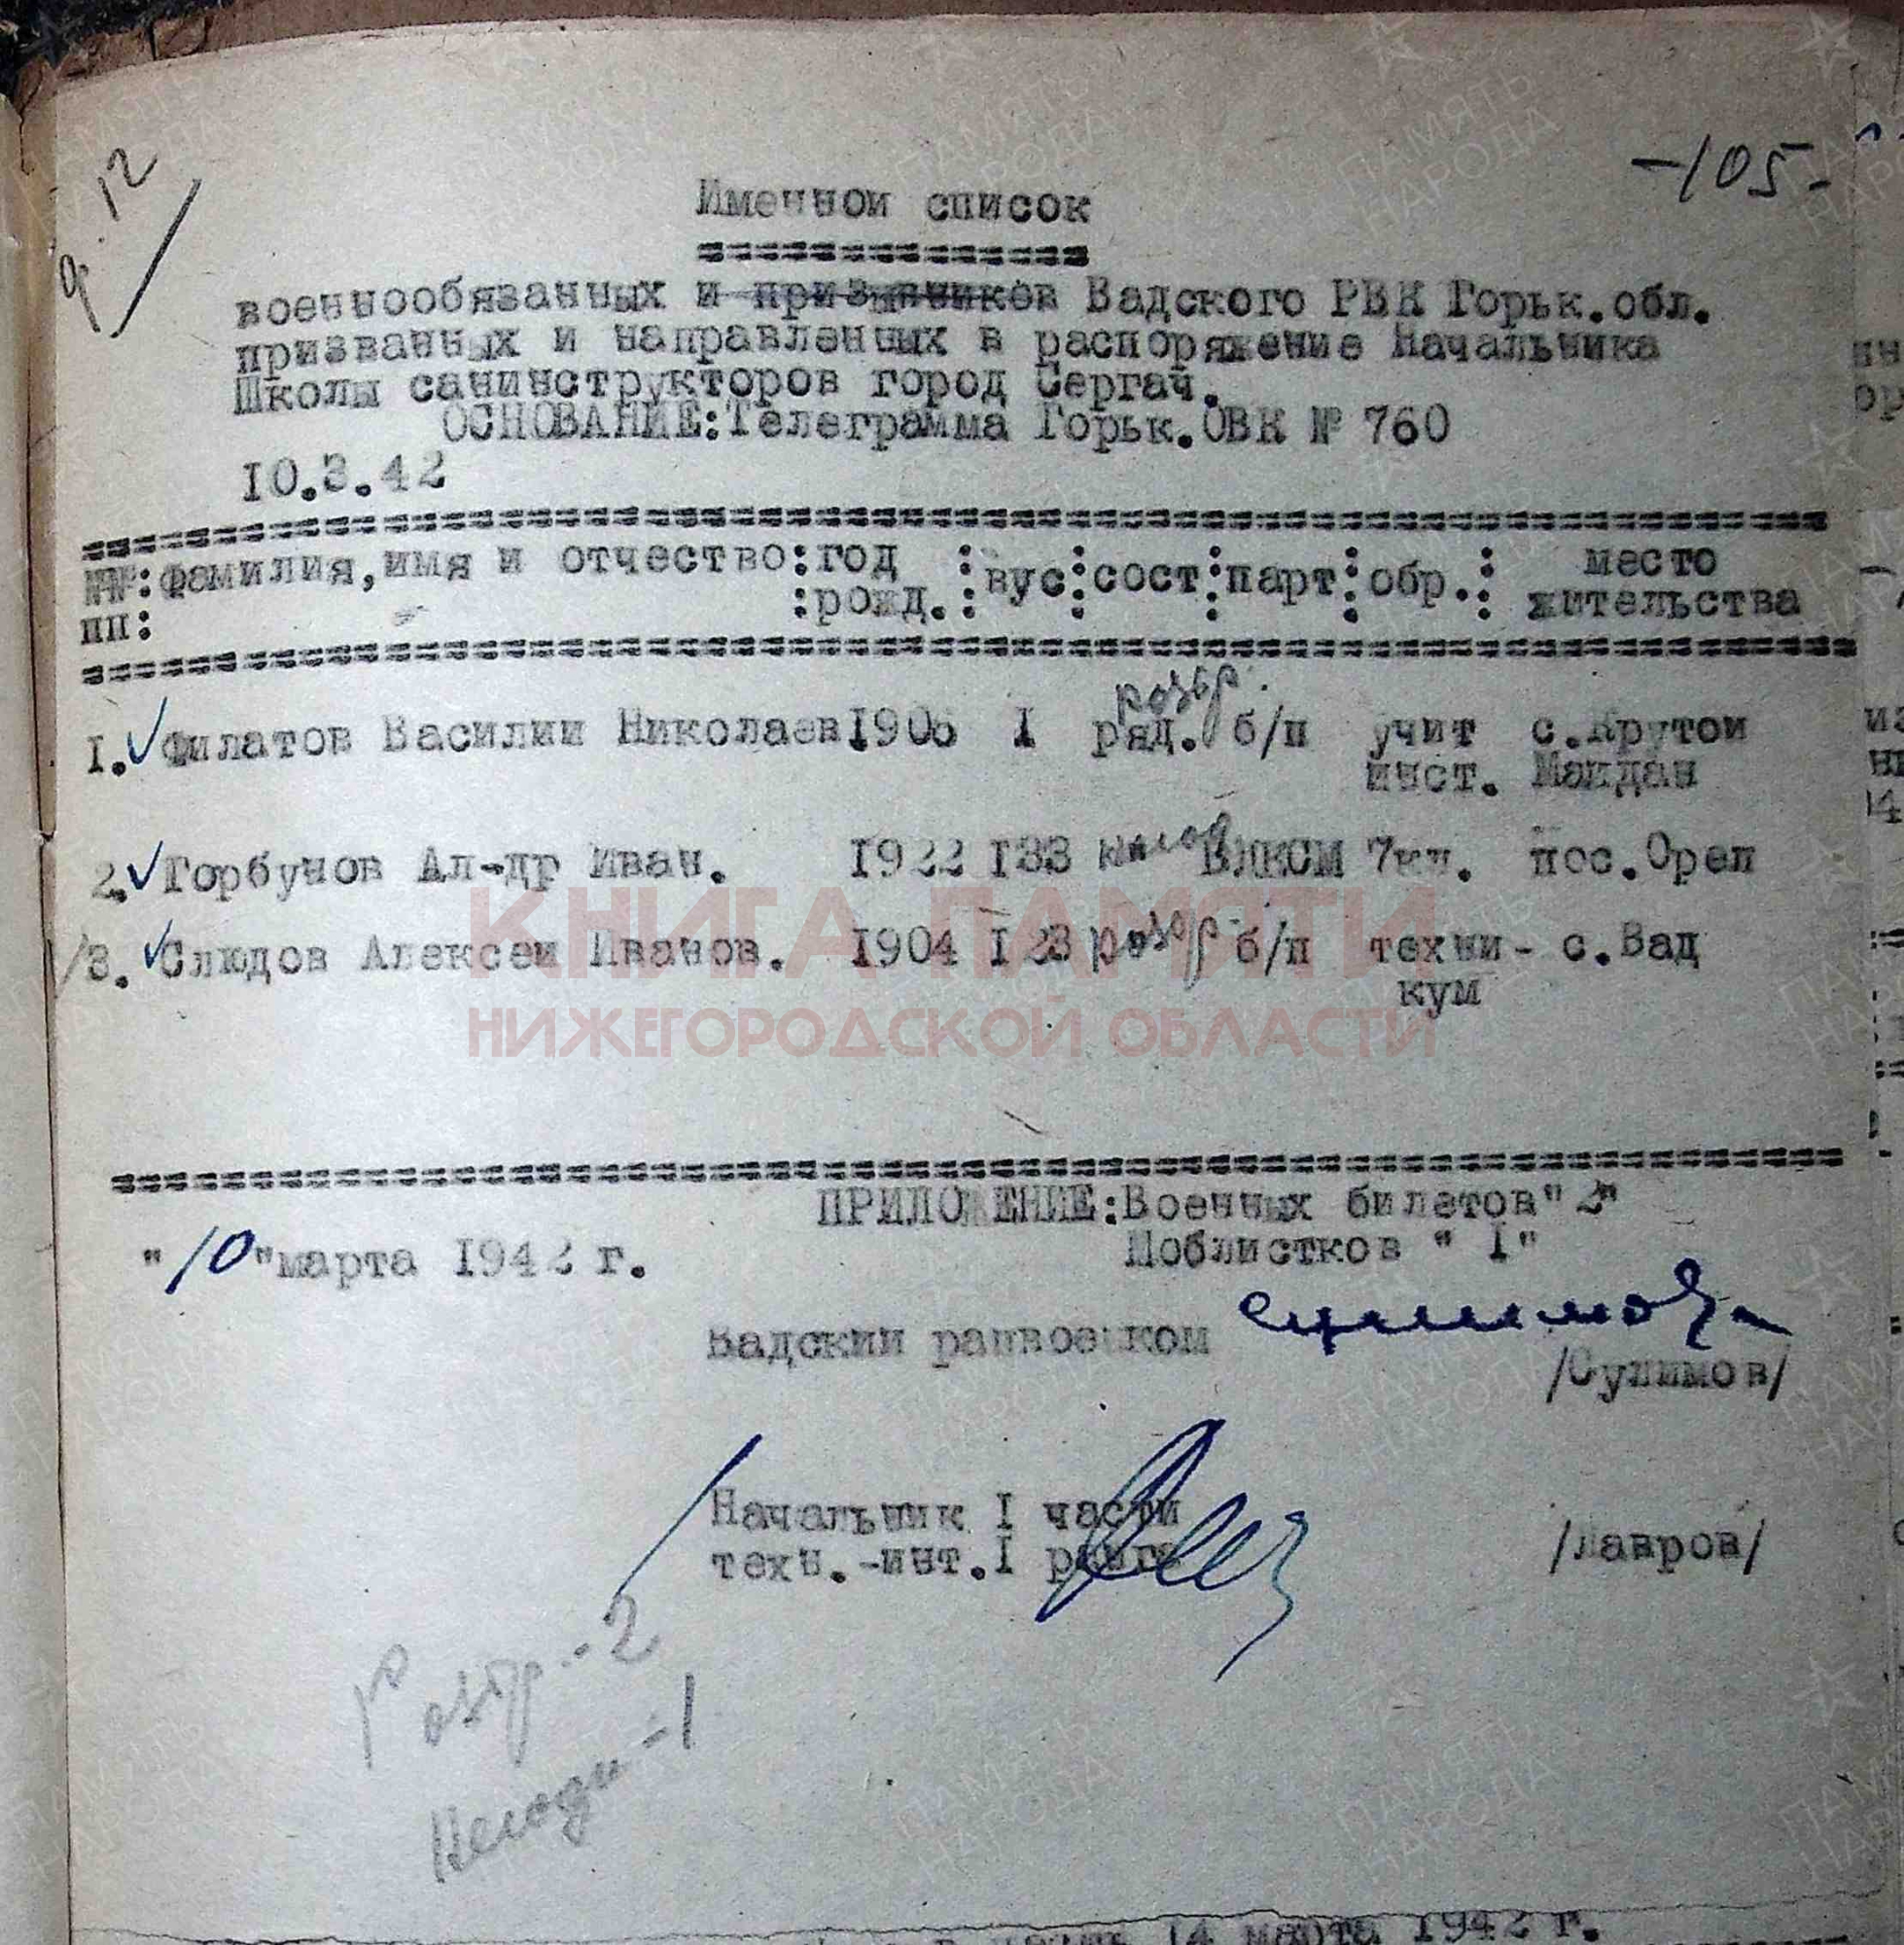 д. 12
-105-
Именной список
военнообязанных и призывников Вадского РВК Горьк.обл.
призванных и направленных в распоряжение Начальника
Школы санинструкторов город Сергач.
ОСНОВАНИЕ:Телеграмма Горьк.ОВК № 760
10.3.42
№№:фамилия,имя и отчество:год :вус:сост:парт:обр.: место
пп: :рожд.: жительства
разр.
1. Филатов Василий Николаев 1906 I ряд. б/п учит с.Крутой
инст. Майдан
2. Горбунов Ал-др Иван. 1922 133 негод ВЛКСМ 7кл. пос.Орел
3. Слюдов Алексей Иванов. 1904 123 разр б/п техни- с.Вад
кум
КНИГА ПАМЯТИ
НИЖЕГОРОДСКОЙ ОБЛАСТИ
ПРИЛОЖЕНИЕ:Военных билетов"2"
"10"марта 1942 г. Моблистков "1"
Вадский райвоенком
/Сулимов/
Начальник I части
техн.-инт.I ранга /Лавров/
Разбр.-2
Негодн-1
14 марта 1942 г.
ПАМЯТЬ НАРОДА